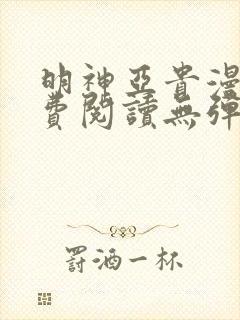 明神亞貴漫
費閱讀無彈
罸酒一杯